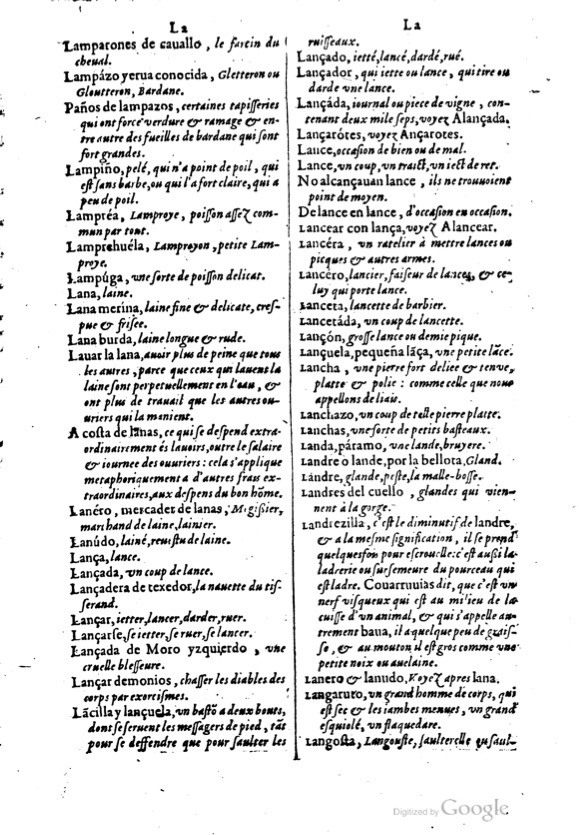 La
Lamparones de cauallo, le farcin du
cheual.
Lampázo yerua conocida, Gletteron ou
Gloutteron, Bardane.
Paños de lampazos, certaines tapisseries
qui ont force verdure & ramage & en-
tre autre des fueilles de bardane qui sont
fort grandes.
Lampiño, pelé, qui n'a point de poil, qui
est sans barbe, ou qui l'a fort claire, qui a
peu de poil.
Lampréa, Lamproye, poisson assez com-
mun par tout.
Lamprehuéla, Lamproyon, petite Lam-
proye.
Lampúga, vne sorte de poisson delicat.
Lana, laine.
Lana merina, laine fine & delicate, cres-
pue & frisee.
Lana burda, laine longue & rude.
Lauar la lana, auoir plus de peine que tous
les autres, parce que ceux qui lauent la
laine sont perpetuellement en l'eau, &
ont plus de trauail que les autres ou-
uriers qui la manient.
A costa de lanas, ce qui se despend extra-
ordinairement és lauoirs, outre le salaire
& iournee des ouuriers : cela s'applique
metaphoriquement a d'autres frais ex-
traordinaires, aux despens du bon hõme.
Lanéro, mercader de lanas, Megissier,
marchand de laine, lainier.
Lanúdo, lainé, reuestu de laine.
Lança, lance.
Lançada, vn coup de lance.
Lançadera de texedor, la nauette du tis-
serand.
Lançar, ietter, lancer, darder, ruer.
Lançarse, se ietter, se ruer, se lancer.
Lançada de Moro yzquierdo, vne
cruelle blesseure.
Lançar demonios, chasser les diables des
corps par exorcismes.
Lãcilla y lançuela, vn bastõ a deux bouts,
dont se seruent les messagers de pied, tãt
pour se deffendre que pour saulter les
La
ruisseaux.
Lançado, ietté, lancé, dardé, rué.
Lançador, qui iette ou lance, qui tire ou
darde vne lance.
Lançáda, iournal ou piece de vigne, con-
tenant deux mile seps, voyez Alançada.
Lançarótes, voyez Ançarotes.
Lance, occasion de bien ou de mal.
Lance, vn coup, vn traict, vn iect de ret.
No alcançauan lance, ils ne trouuoient
point de moyen.
De lance en lance, d'occasion en occasion.
Lancear con lança, voyez Alancear.
Lancéra, vn ratelier à mettre lances ou
picques & autres armes.
Lancéro, lancier, faiseur de lances, & ce-
luy qui porte lance.
Lanceta, lancette de barbier.
Lancetáda, vn coup de lancette.
Lançón, grosse lance ou demie pique.
Lançuela, pequeña lãça, vne petite lãce.
Lancha, vne pierre fort deliee & tenue,
platte & polie : comme celle que nous
appellons de liais.
Lanchazo, vn coup de telle pierre platte.
Lanchas, vne sorte de petits basteaux.
Landa, páramo, vne lande, bruyere.
Landre o lande, por la bellota, Gland.
Lándre, glande, peste, la malle-bosse.
Landres del cuello, glandes qui vien-
nent à la gorge.
Landrezilla, c'est le diminutif de landre,
& a la mesme signification, il se prend
quelquesfois pour escrouelle: c'est aussi la
ladrerie ou sursemeure du pourceau qui
est ladre. Couarruuias dit, que c'est vn
nerf visqueux qui est au milieu de la
cuisse d'vn animal, & qui s'appelle au-
trement baua, il a quelque peu de graiss-
se, & au mouton il est gros comme vne
petite noix ou auelaine.
Lanero & lanudo, Voyez apres lana.
Langaruto, vn grand homme de corps, qui
est sec & les iambes menues, vn grand
esquiolé, vn flaquedare.
Langosta, Langouste, saulterelle ou saul-
Digitized by Google